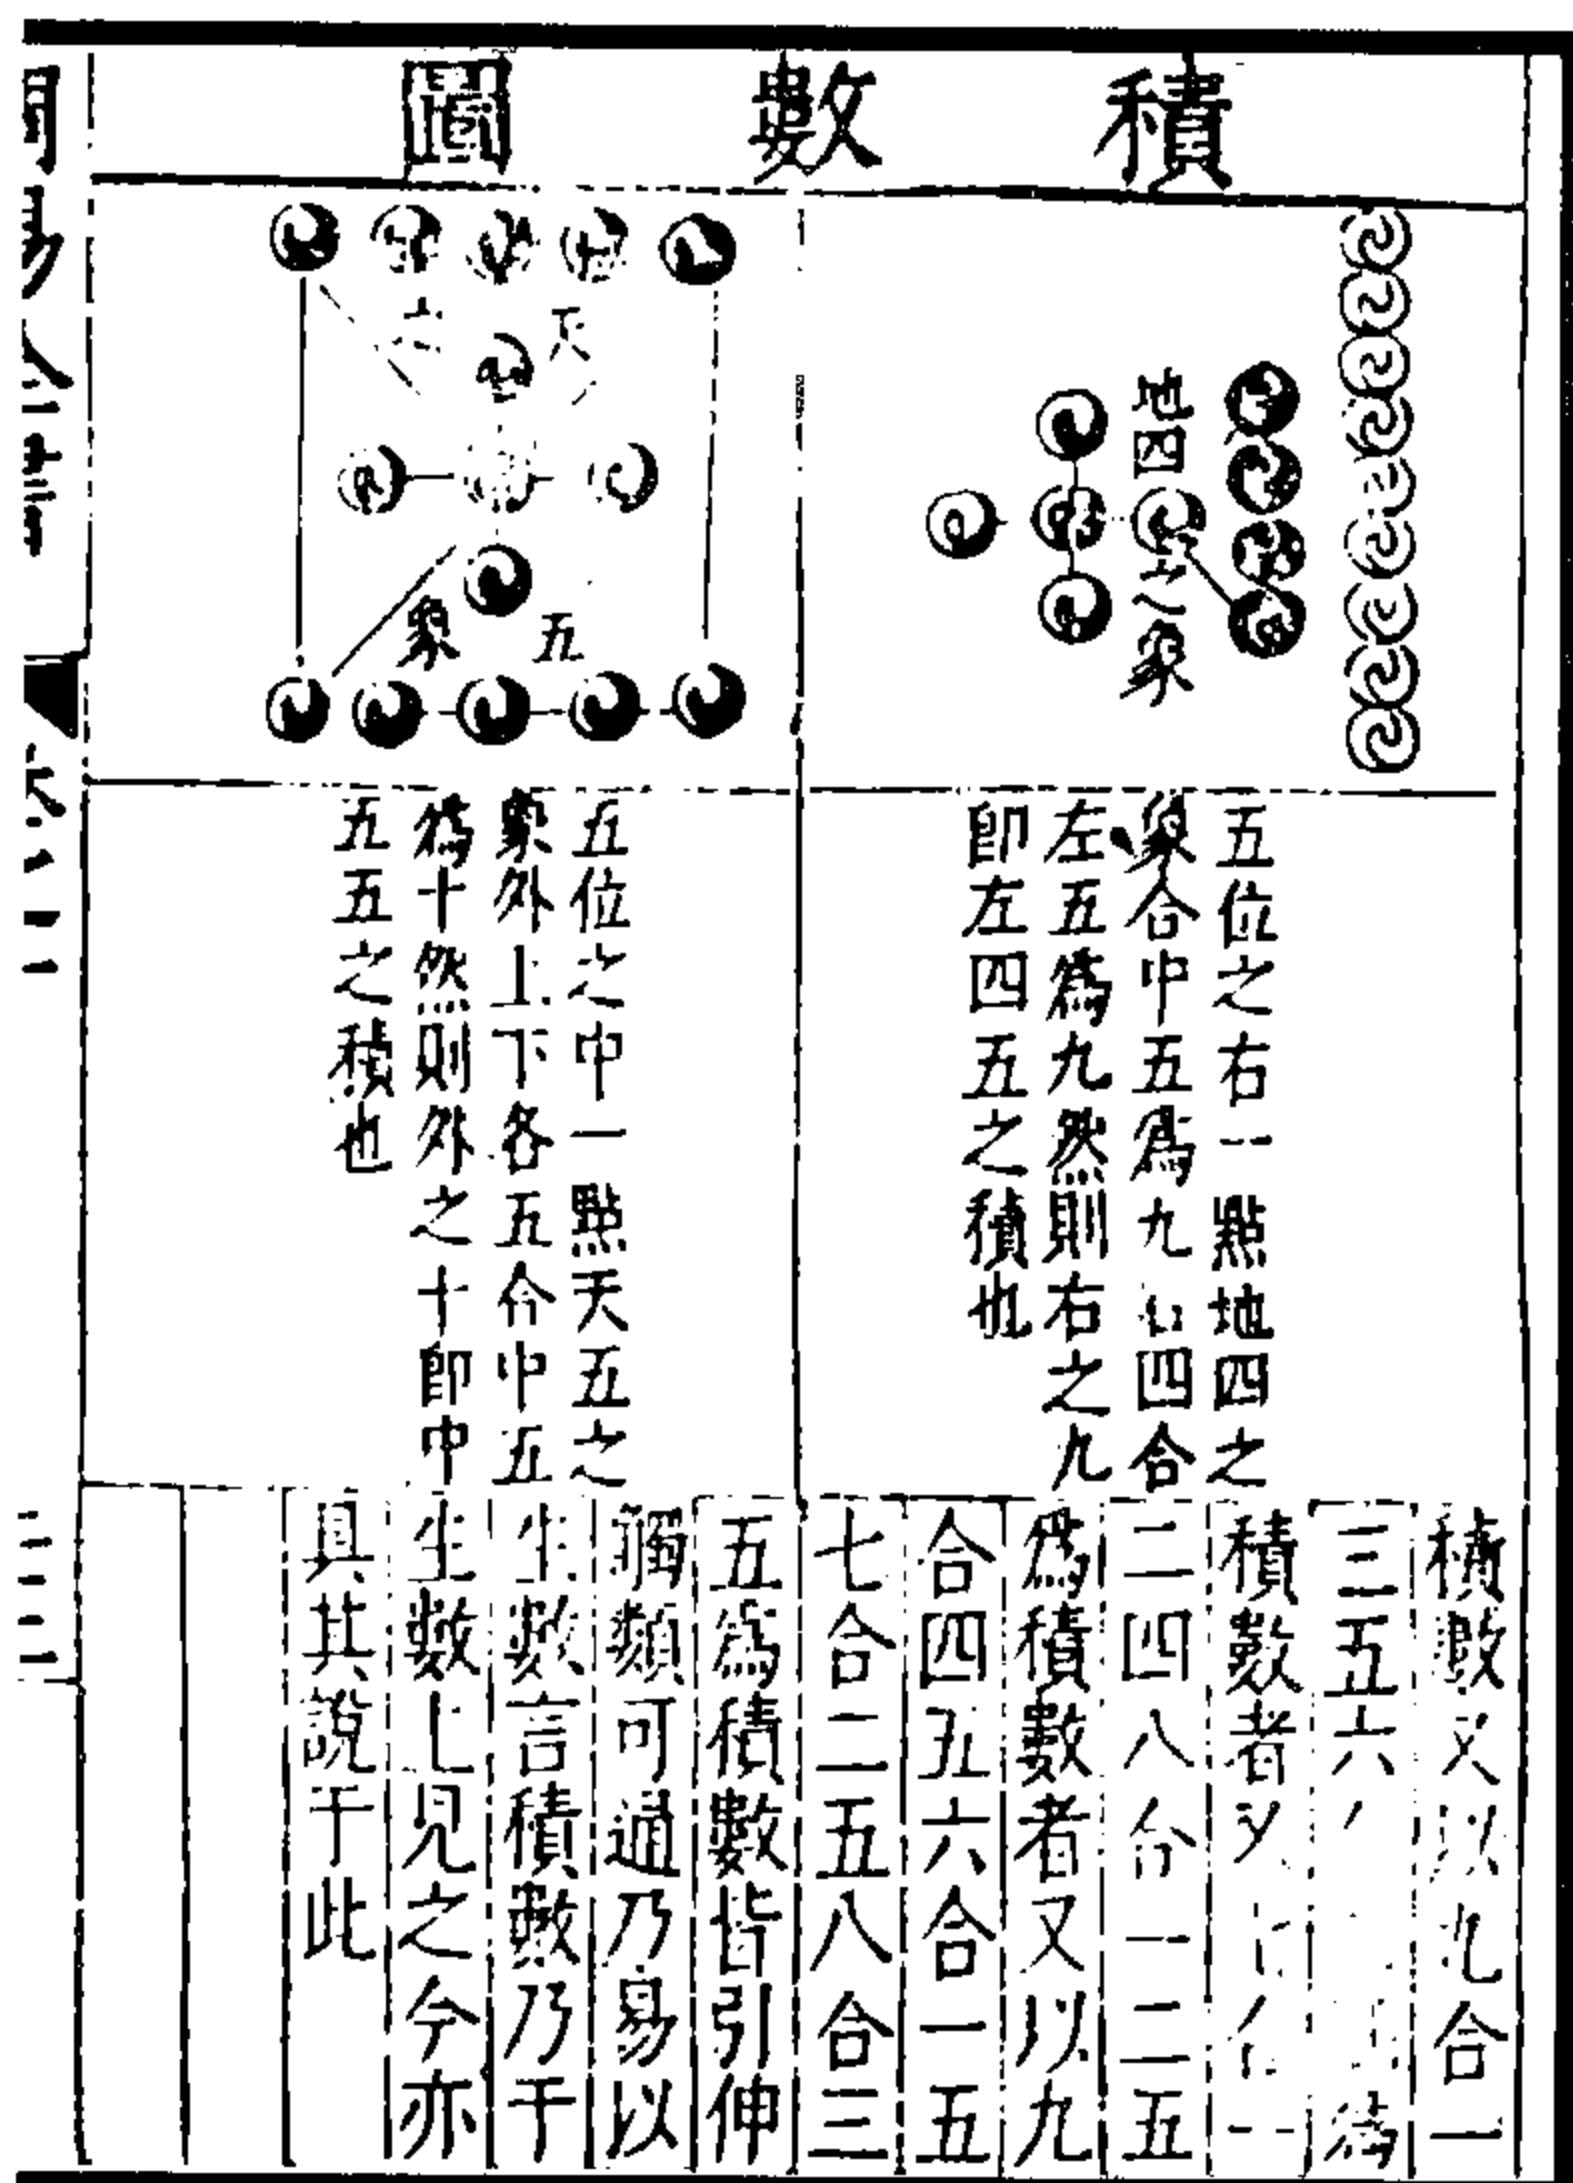 積數圖
地四之象
五位之右一點地四之
象合中五爲九右四合
左五爲九然則右之九
即左四五之積也
天
五
象
五位之中一點天五之
象外上下各五合中五
爲十然則外之十即中
五五之積也
積數又以九合一
三五六 爲
積數者又
二四八合一二五
爲積數者又以九
合四五六合一五
七合二五八合三
五爲積數皆引伸
觸類可通乃易以
生數言積數乃于
生數上見之今亦
具其說于此
周易全書
二
三